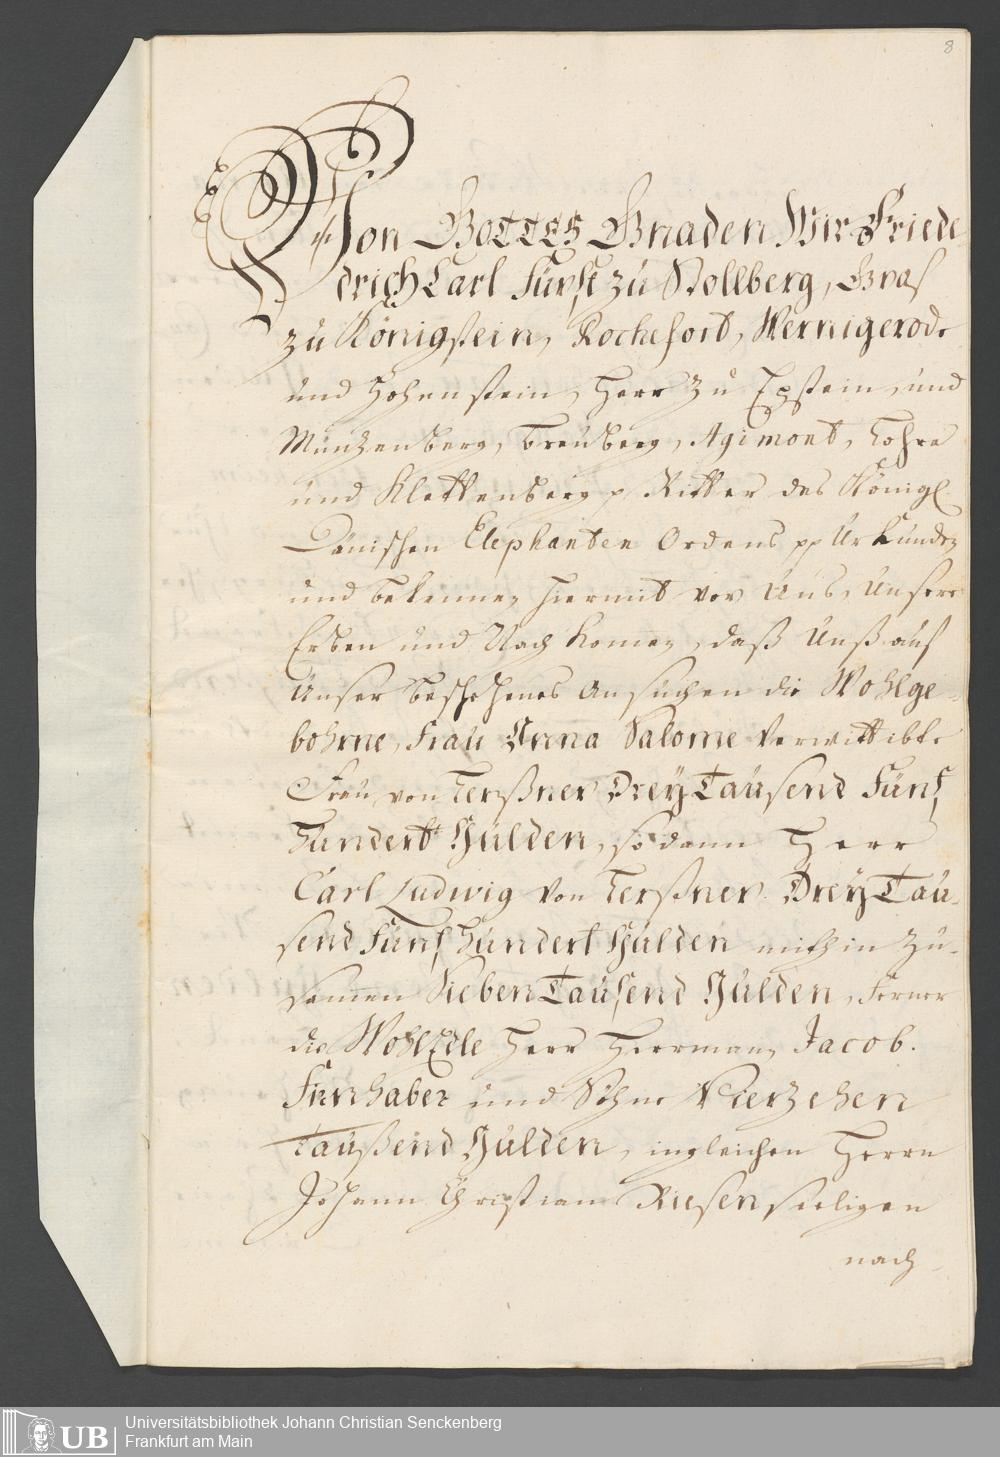 8
Von GOTTES Gnaden Wir Friede
drich Carl Fürst zu Stollberg, Graf
zu Königstein, Rochefort, Wernigerode
und Hohenstein, Herr zu Epstein, und
Müntzenberg, Breuberg, Agimont, Lohra
und Klettenberg p Ritter des Königl.
Dänischen Elephanten Ordens pp Urkunden
und bekennen hiermit vor Uns, Unsere
Erben und Nach Komen, daß Unß auf
Unser beschehenes Ansuchen die Wohlge-
bohrne, Frau Anna Salome Verwittibte
Frau von Lerßner Drey Tausend Fünf
Hundert Gülden, sodann Herr
Carl Ludwig von Lerßner Drey Tau-
send Fünf Hundert Gulden mithin zu-
samen Sieben Tausend Gülden, ferner
die WohlEdle Herr Hermann Jacob.
Firnhaber und Söhne Vierzehen
Taußend Gülden, ingleichen Herrn
Johann Christian Riesen seeligen
nach
UB
Universitätsbibliothek Johann Christian Senckenberg
Frankfurt am Main